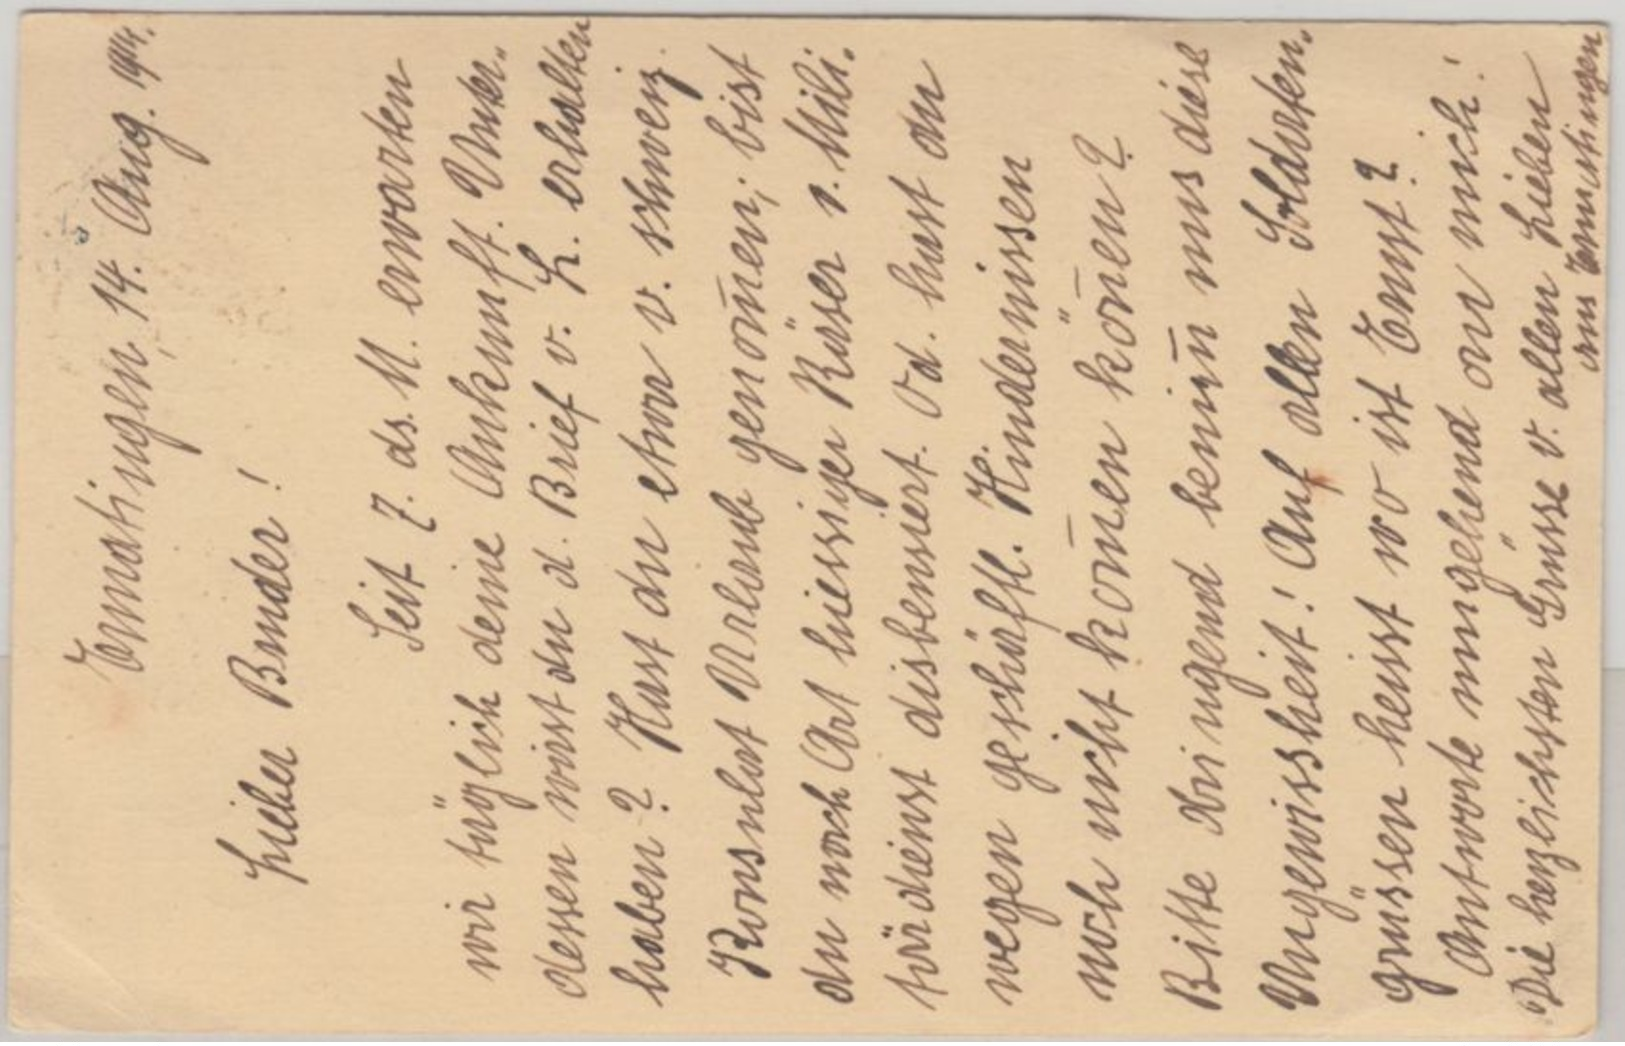 Ermatingen, 14. Aug. 1914.
Lieber Bruder!
Seit 7. ds. M. erwarten
wir täglich deine Ankunft. Unter-
dessen wirst du d. Brief v. L. erhalten
haben? Hast du etwa v. schweiz.
Konsulat Urlaub genom̄en; bist
du nach Art hiesiger Käser v. Mili-
tärdienst disbensiert. Od. hast du
wegen geschäftl. Hindernissen
noch nicht kom̄en kön̄en?
Bitte dringend benim̄ uns diese
Ungewissheit! Auf allen Soldaten-
grüssen heisst wo ist Ernst?
Antworte umgehend an mich!
Die herzlichsten Grüsse v. allen Lieben
aus Ermatingen